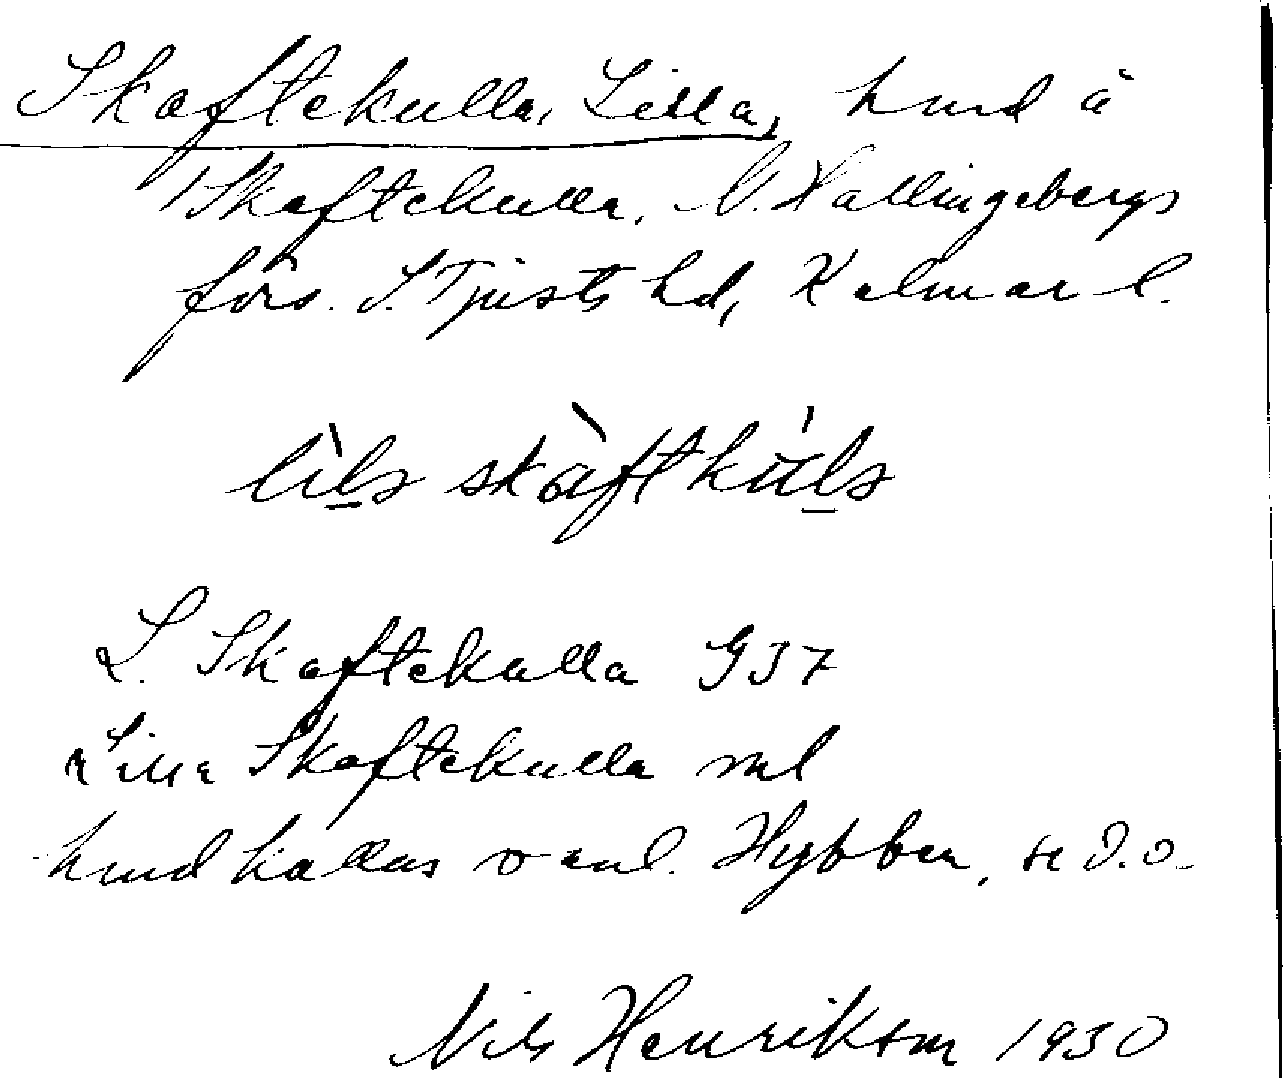 Skaftekulla, Lilla, hmd å
Skaftekulla, V. Hallingebergs
förs. S. Tjusts hd, Kalmar l.
L. Skaftekulla G37
Lilla Skaftekulla ml
hmd kallas vanl. Hybben, se d.o.
Nils Henrikson 1930